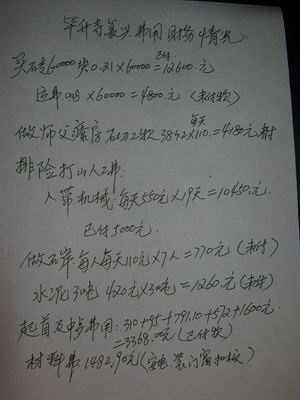 毕升寺复兴费用财务情况
买砖60000块0.21×60000=12600.元
已付
运费0.08×60000=4800.元(未付款)
做师父寮房砌工款38牛2×110.=4180元未付
每天
排险打山人工费:
人带机械:每天550元×19天=10450.元.
已付5000元.
做石岸每人每天110元×7人=770元(未付)
水泥3吨 420元×3吨=1260.元(未付)
起首及中步费用:310+95+791.10+512+1600元
=3368.00元(已付款)
材料费1482.90元(安电装门窗扣板)